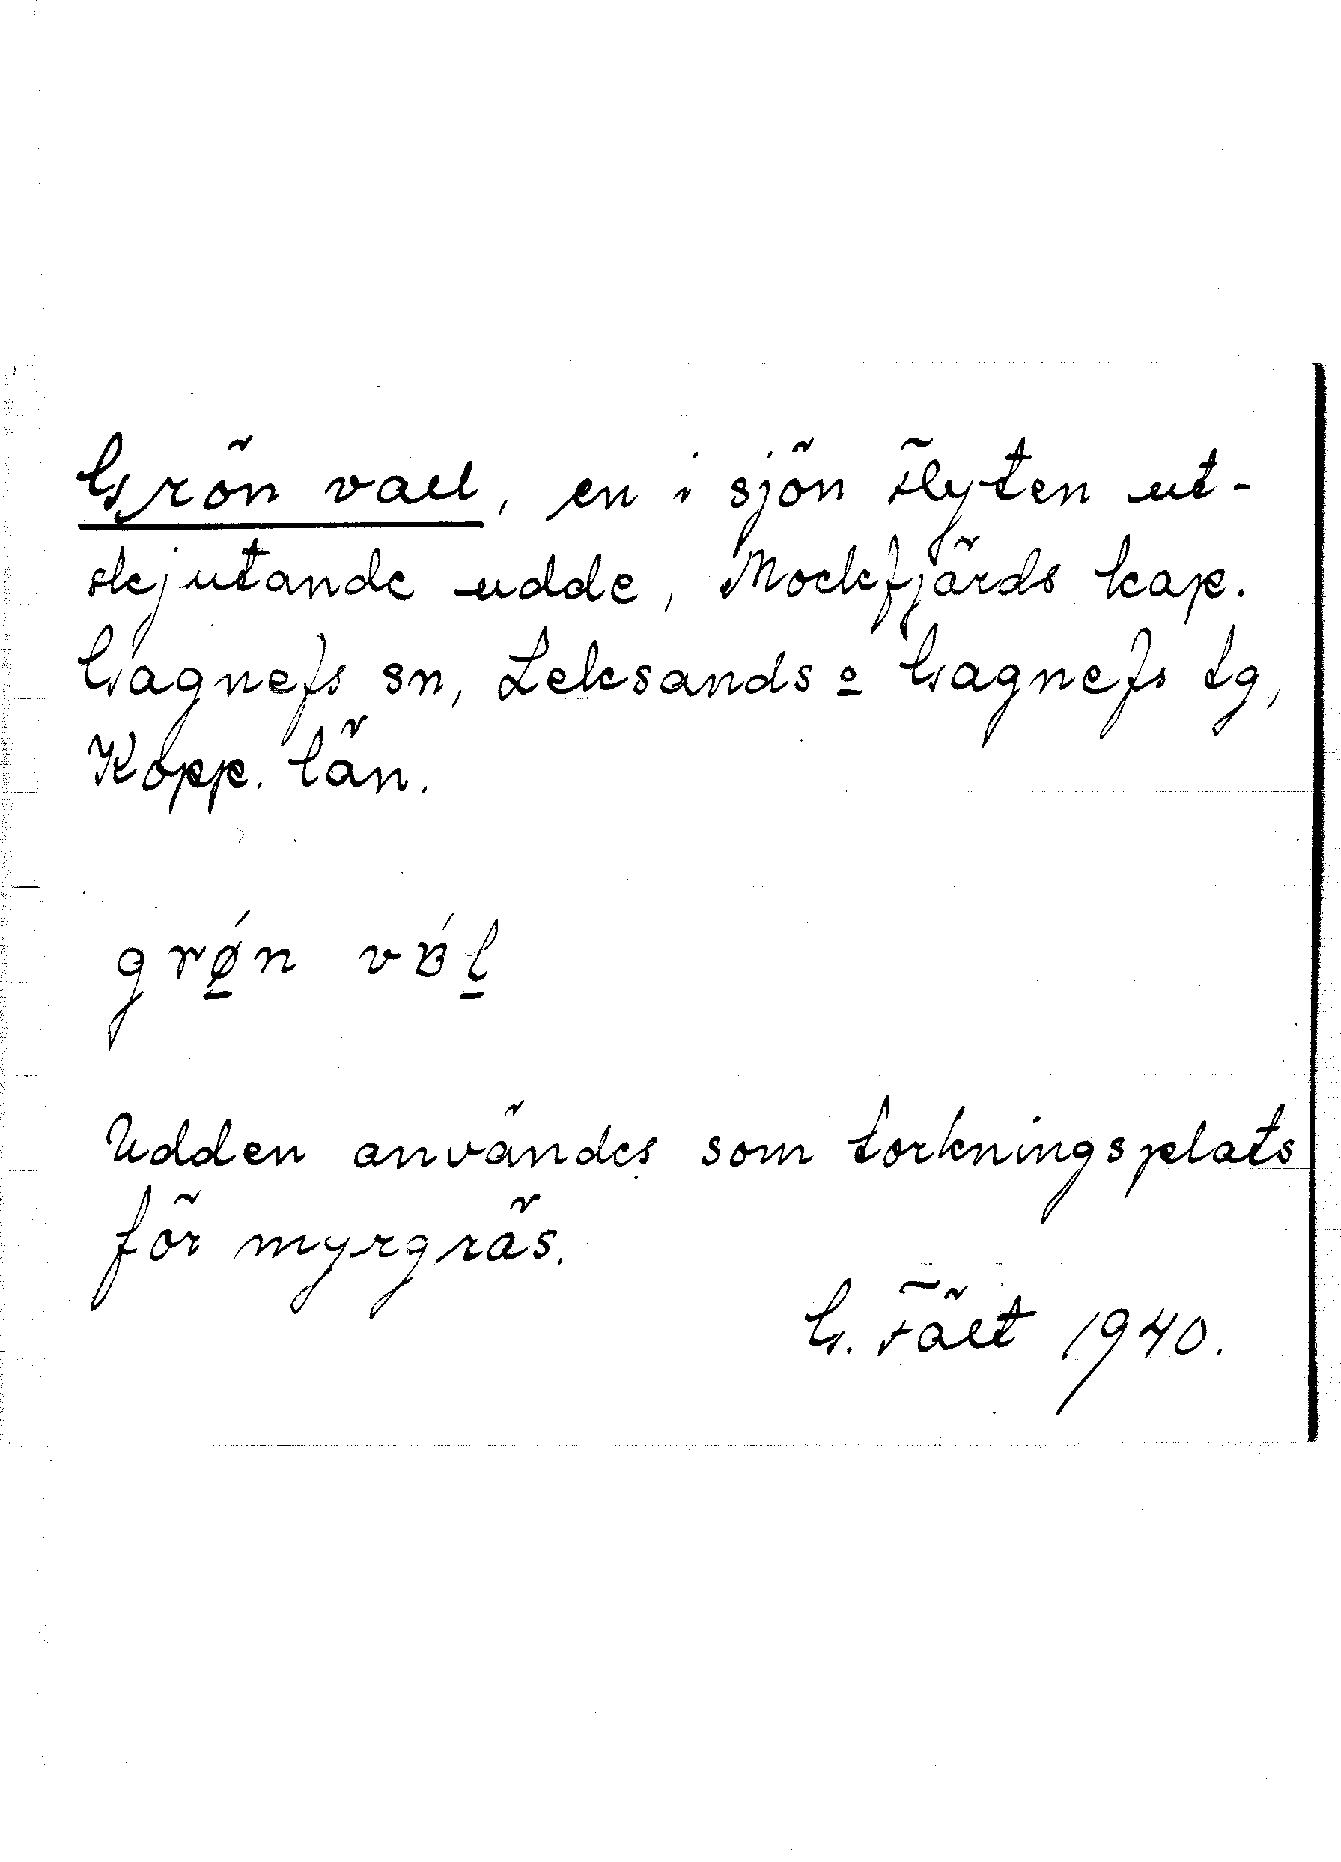 Grön vall, en i sjön Flyten ut-
skjutande udde, Mockfjärds kap.
Gagnefs sn, Leksands o Gagnefs tg,
Kopp. län.
grǿ̠n vɞ́l̠
Udden användes som torkningsplats
för myrgräs.
G. Fält 1940.